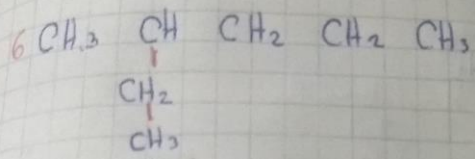 6 CH3 CH CH2 CH2 CH3
CH2
CH3